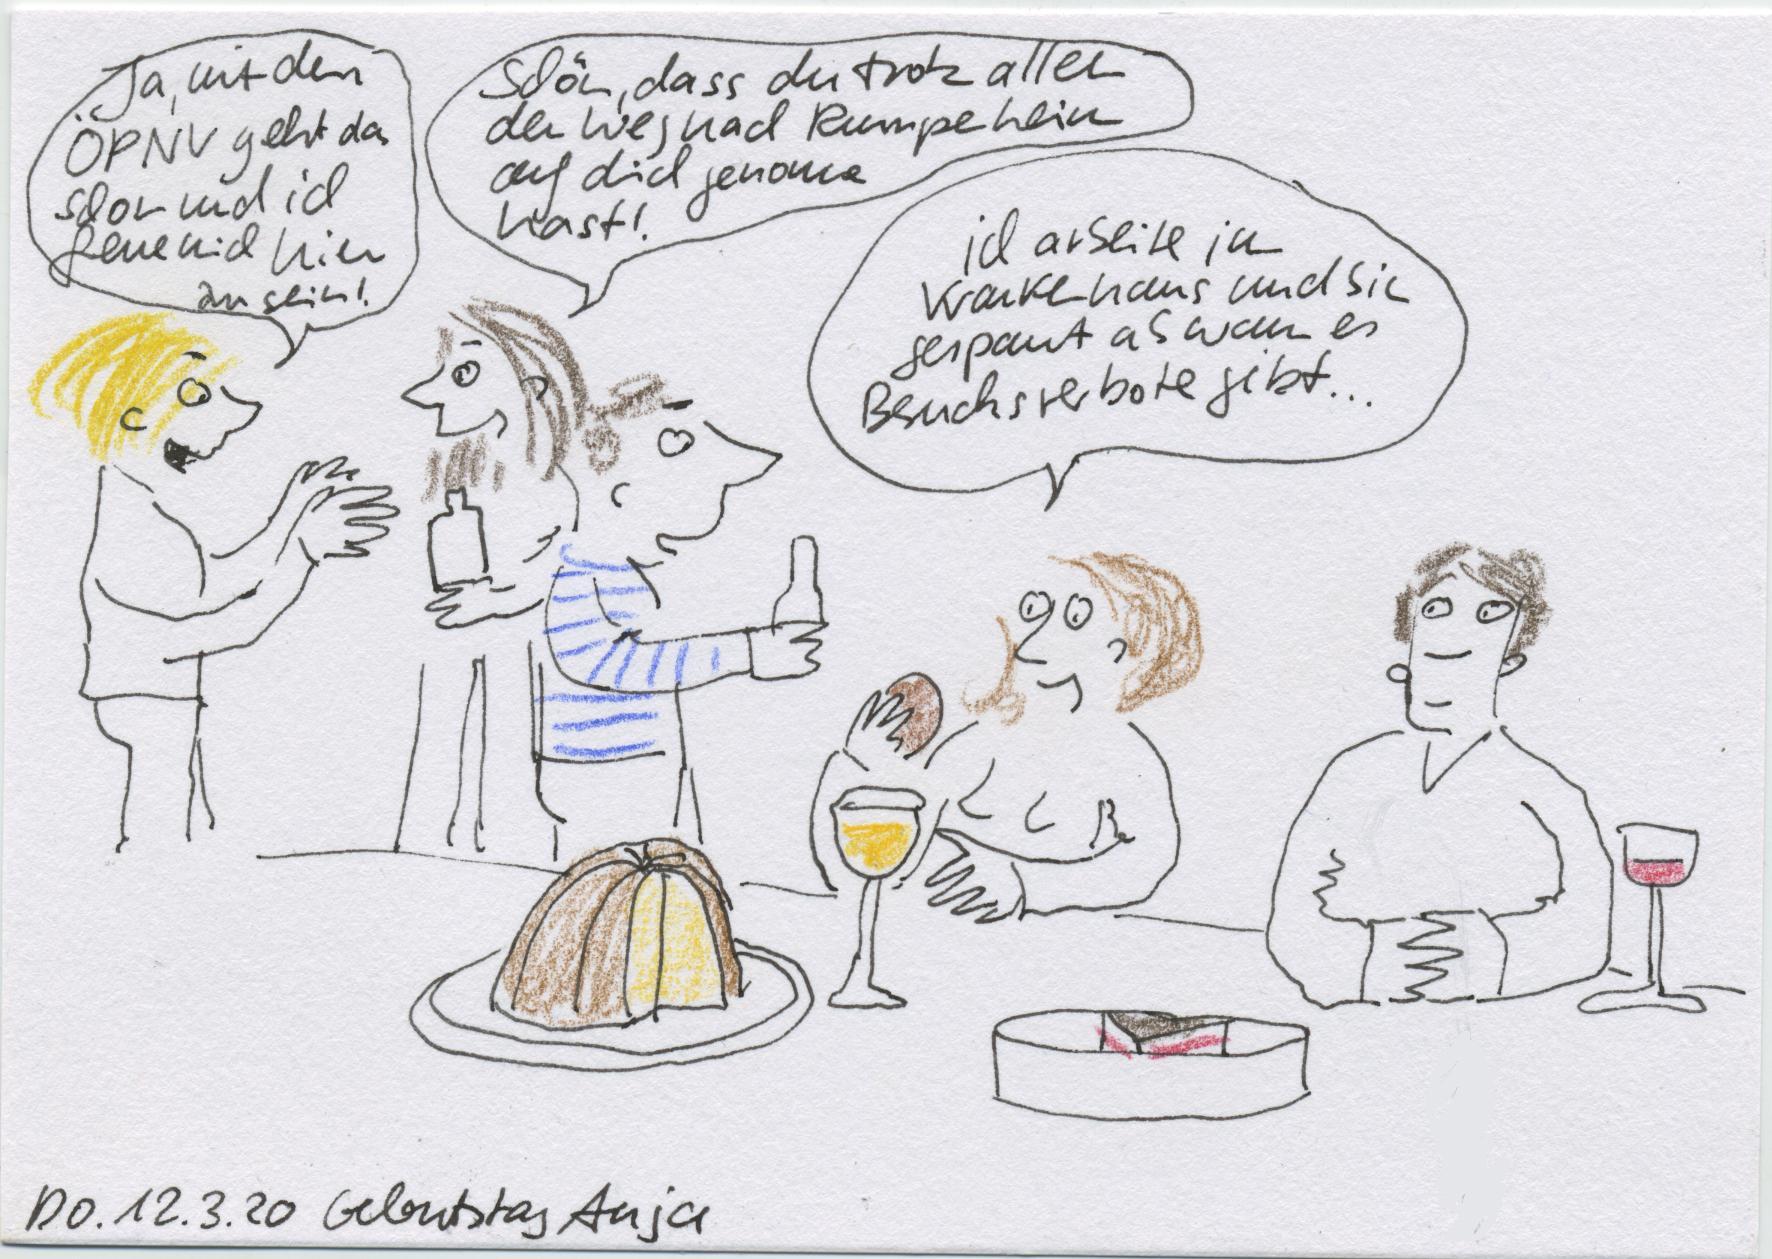 Ja, mit dem
ÖPNV geht da
schon und ich
freue mich hier
zu sein!
Schön, dass du trotz allem
den Weg nach Rumpenheim
auf dich genomme
hast!
ich arbeite im
Krankenhaus und bin
gespannt ab wann es
Besuchsverbote gibt...
Do. 12.3.20 Geburtstag Anja